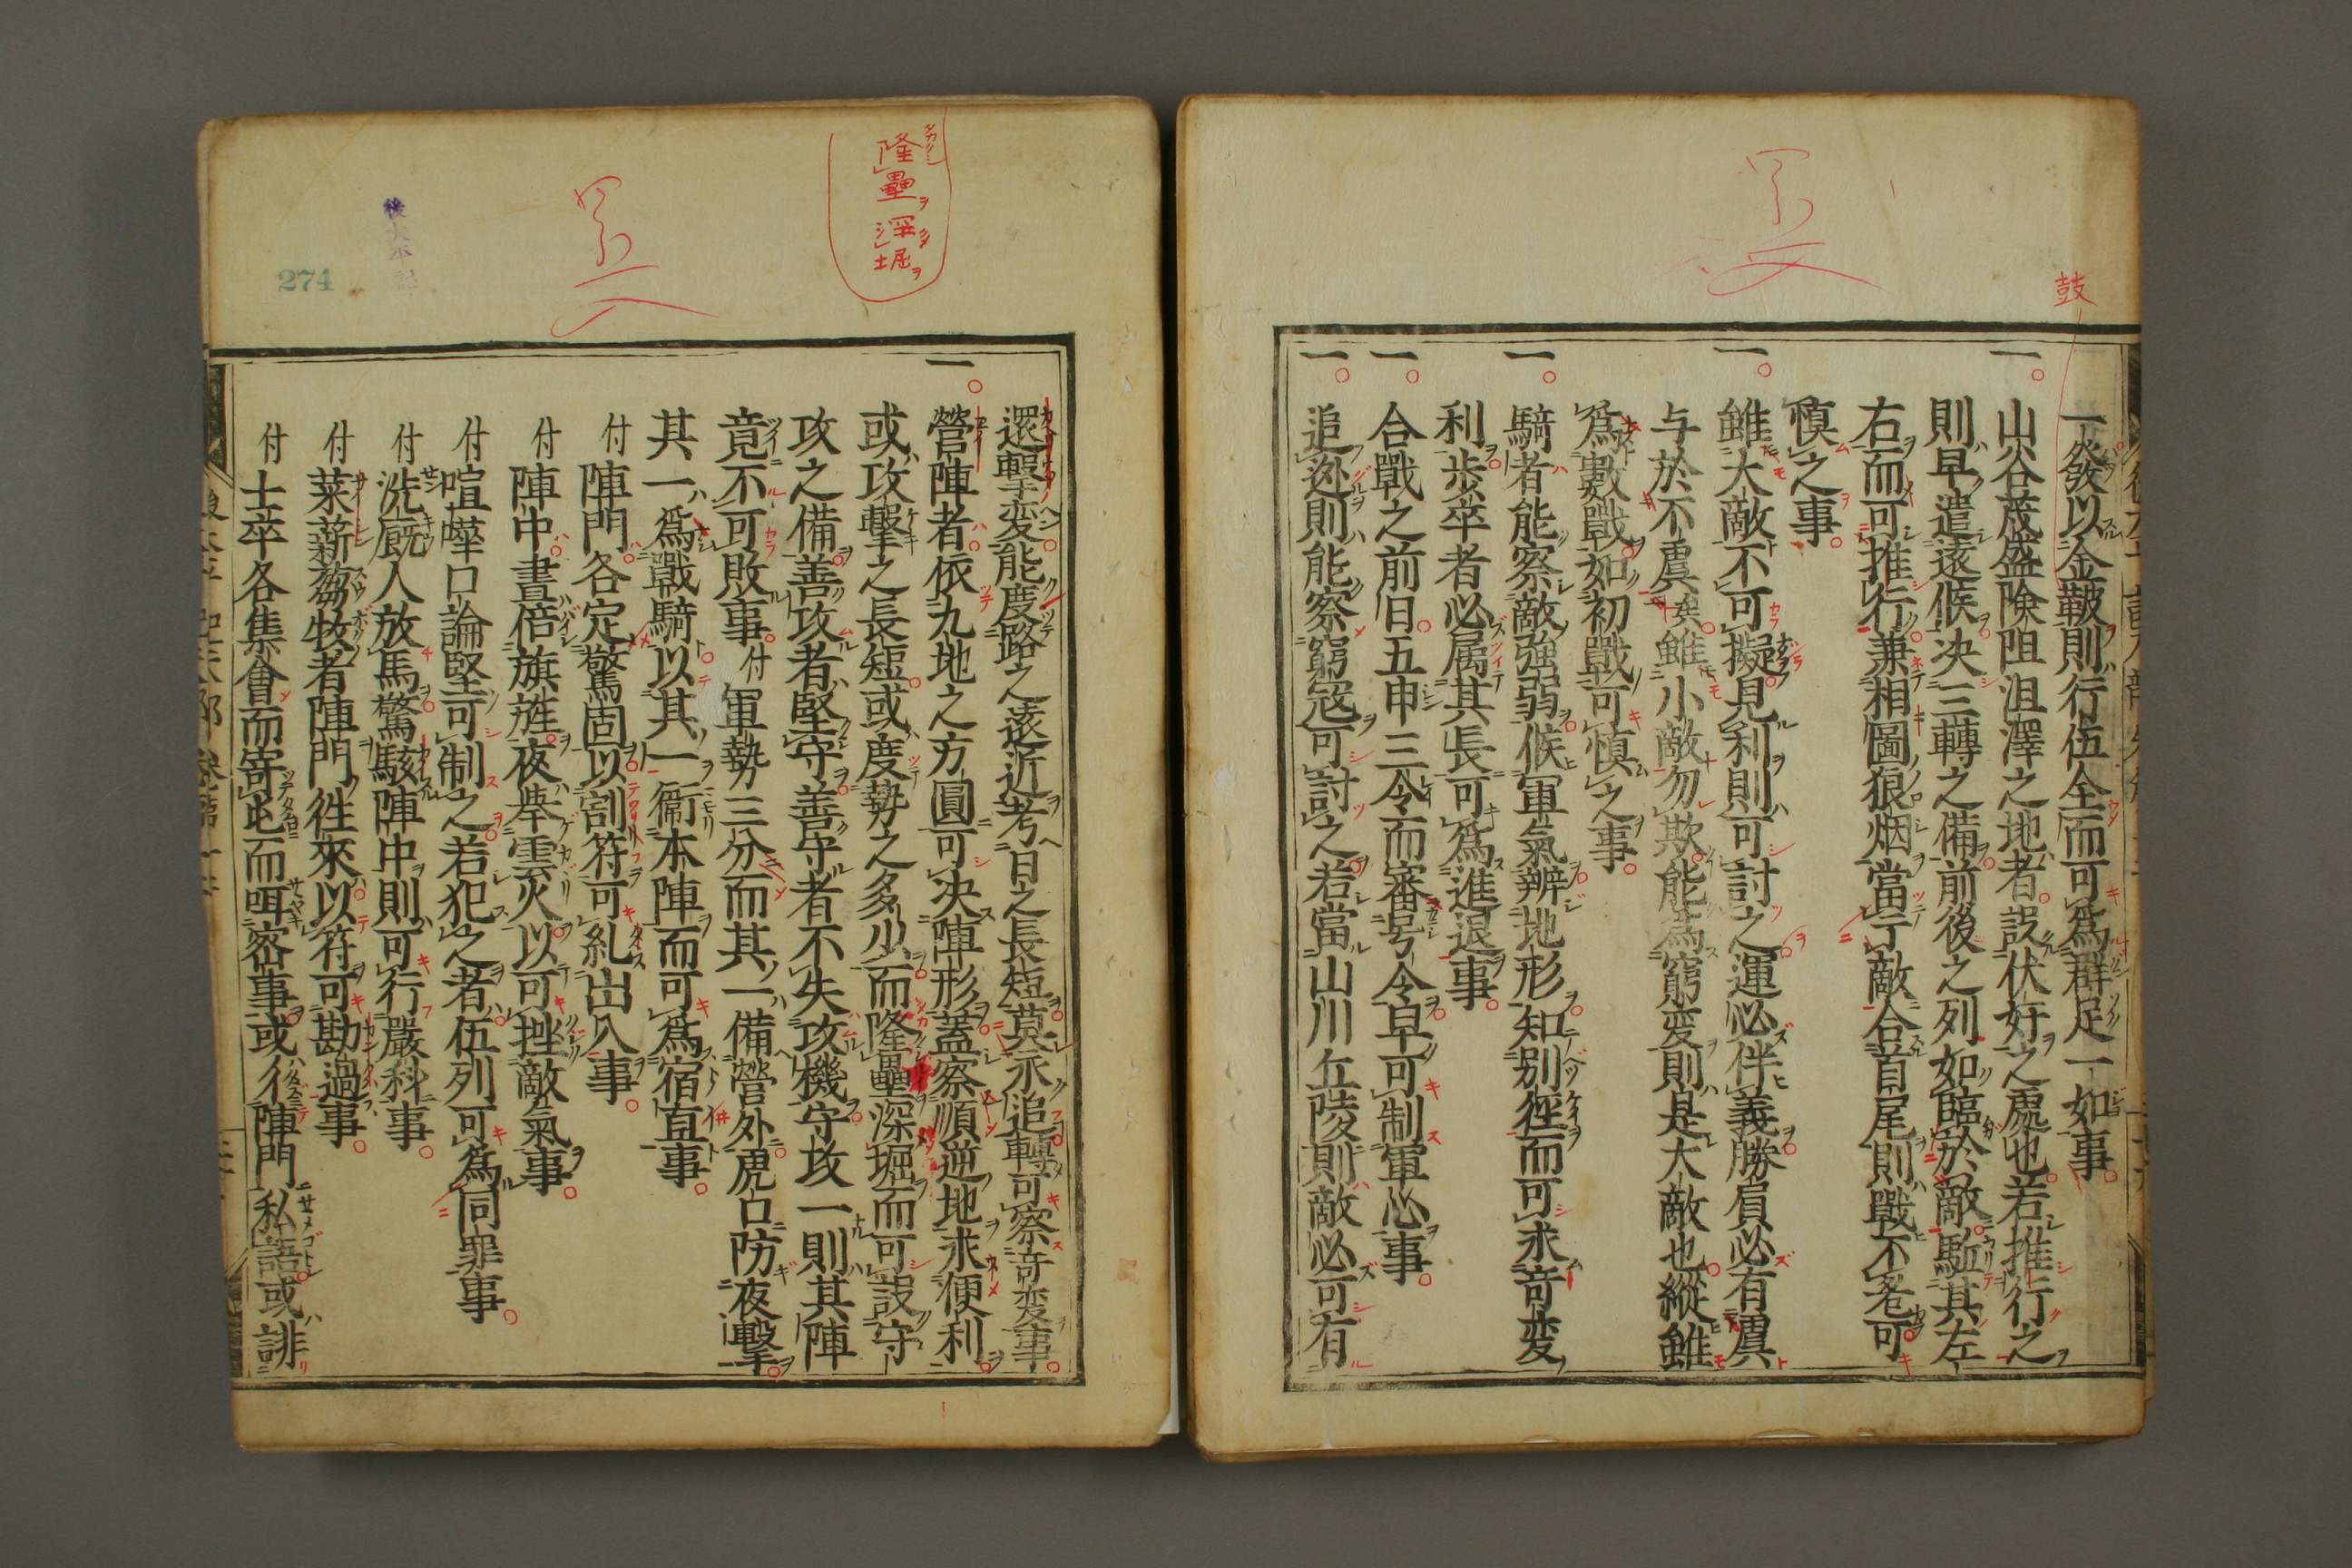 鼓
一發以金鼙則行伍全而可爲群足一如事
一山谷茂盛険阻沮澤之地者設伏奸之處也若推行之
則早遣遠候决三轉之備前後之列如臨於敵駈其左
右而可推行兼相圖狼烟當于敵合首尾則戰不畧可
愼之事
一雖大敵不可擬見利則可討之運必伴義勝負必有虞
与於不虞矣雖小敵勿欺能爲窮变則是大敵也縱雖
爲數戰如初戰可愼之事
一騎者能察敵強弱候軍氣辨地形知别徑而可求奇变
利歩卒者必属其長可爲進退事
一合戰之前日五申三令而審号令早可制軍心事
一追迯則能察窮寇可討之若當山川丘陵則敵必可有
隆壘深堀
還撃变能度路之遠近考日之長短莫永追轉可察奇变事
一營陣者依九地之方圓可决陣形蓋察順逆地求便利
或攻撃之長短或度勢之多少而隆壘深堀而可設守
攻之備善攻者堅守善守者不失攻機守攻一則其陣
竟不可敗事付軍勢三分而其一備營外虎口防夜撃
其一爲戰騎以其一衞本陣而可爲宿直事
付陣門各定驚固以割符可糺出入事
付陣中晝倍旗旌夜舉雲火以可挫敵氣事
付喧嘩口論堅可制之若犯之者伍列可爲同罪事
付洗厩人放馬驚駭陣中則可行嚴科事
付菜薪蒭牧者陣門徃來以符可勘過事
付士卒各集會而寄屯而咡密事或後陣門私語或誹
後太平記
274